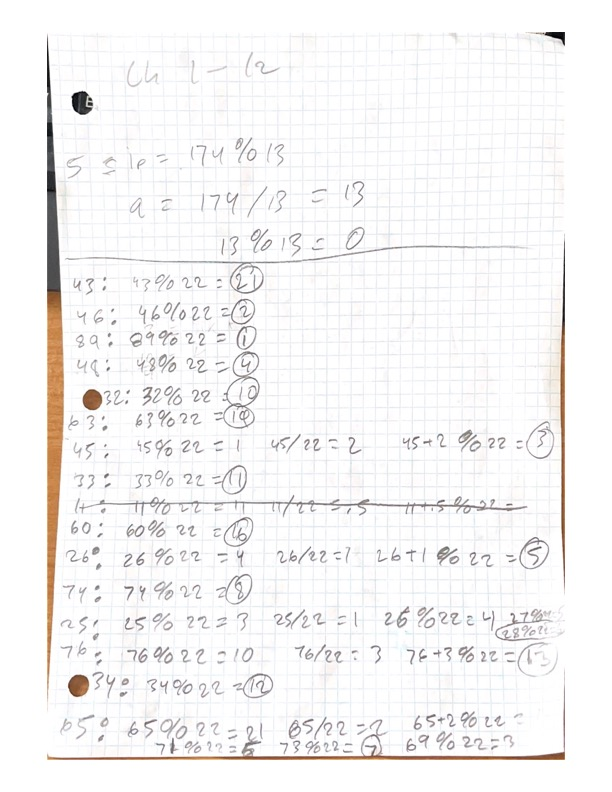 Ch 1-12
5 = ip = 174 % 13
a = 174 / 13 = 13
13 % 13 = 0
43: 43 % 22 = 21
46: 46 % 22 = 2
89: 89 % 22 = 1
48: 48 % 22 = 4
32: 32 % 22 = 10
63: 63 % 22 = 19
45: 45 % 22 = 1 45/22 = 2 45+2 % 22 = 3
33: 33 % 22 = 11
11: 11 % 22 = 11 11/22 = .5 11+.5 % 22 =
60: 60 % 22 = 16
26: 26 % 22 = 4 26/22 = 1 26+1 % 22 = 5
74: 74 % 22 = 8
25: 25 % 22 = 3 25/22 = 1 26 % 22 = 4 27%22=5
28%22=
76: 76 % 22 = 10 76/22 = 3 76+3 % 22 = 13
34: 34 % 22 = 12
65: 65 % 22 = 21 65/22 = 2 65+2 % 22 =
71 % 22 = 5 73 % 22 = 7 69 % 22 = 3